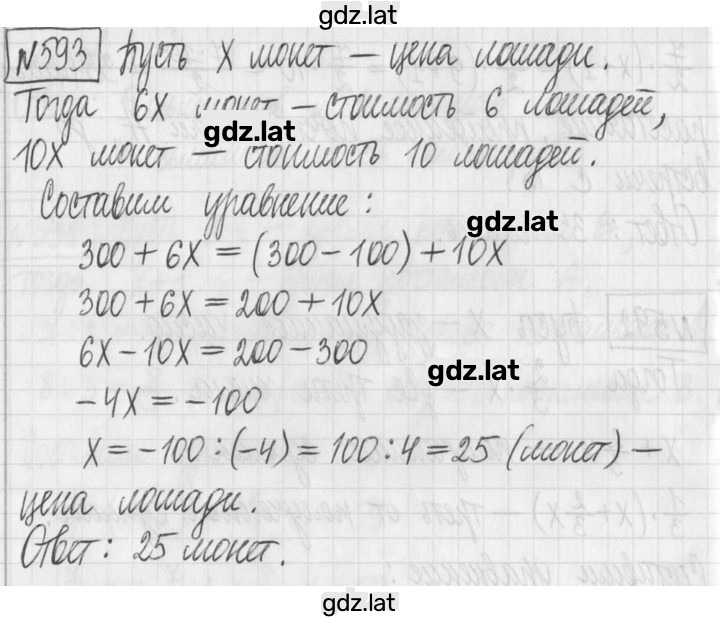 gdz.lat
№593 Пусть X монет — цена лошади.
Тогда 6X монет — стоимость 6 лошадей,
gdz.lat
10X монет — стоимость 10 лошадей.
Составим уравнение:
gdz.lat
300 + 6X = (300 - 100) + 10X
300 + 6X = 200 + 10X
6X - 10X = 200 - 300
gdz.lat
-4X = -100
X = -100 : (-4) = 100 : 4 = 25 (монет) —
цена лошади.
Ответ: 25 монет.
gdz.lat